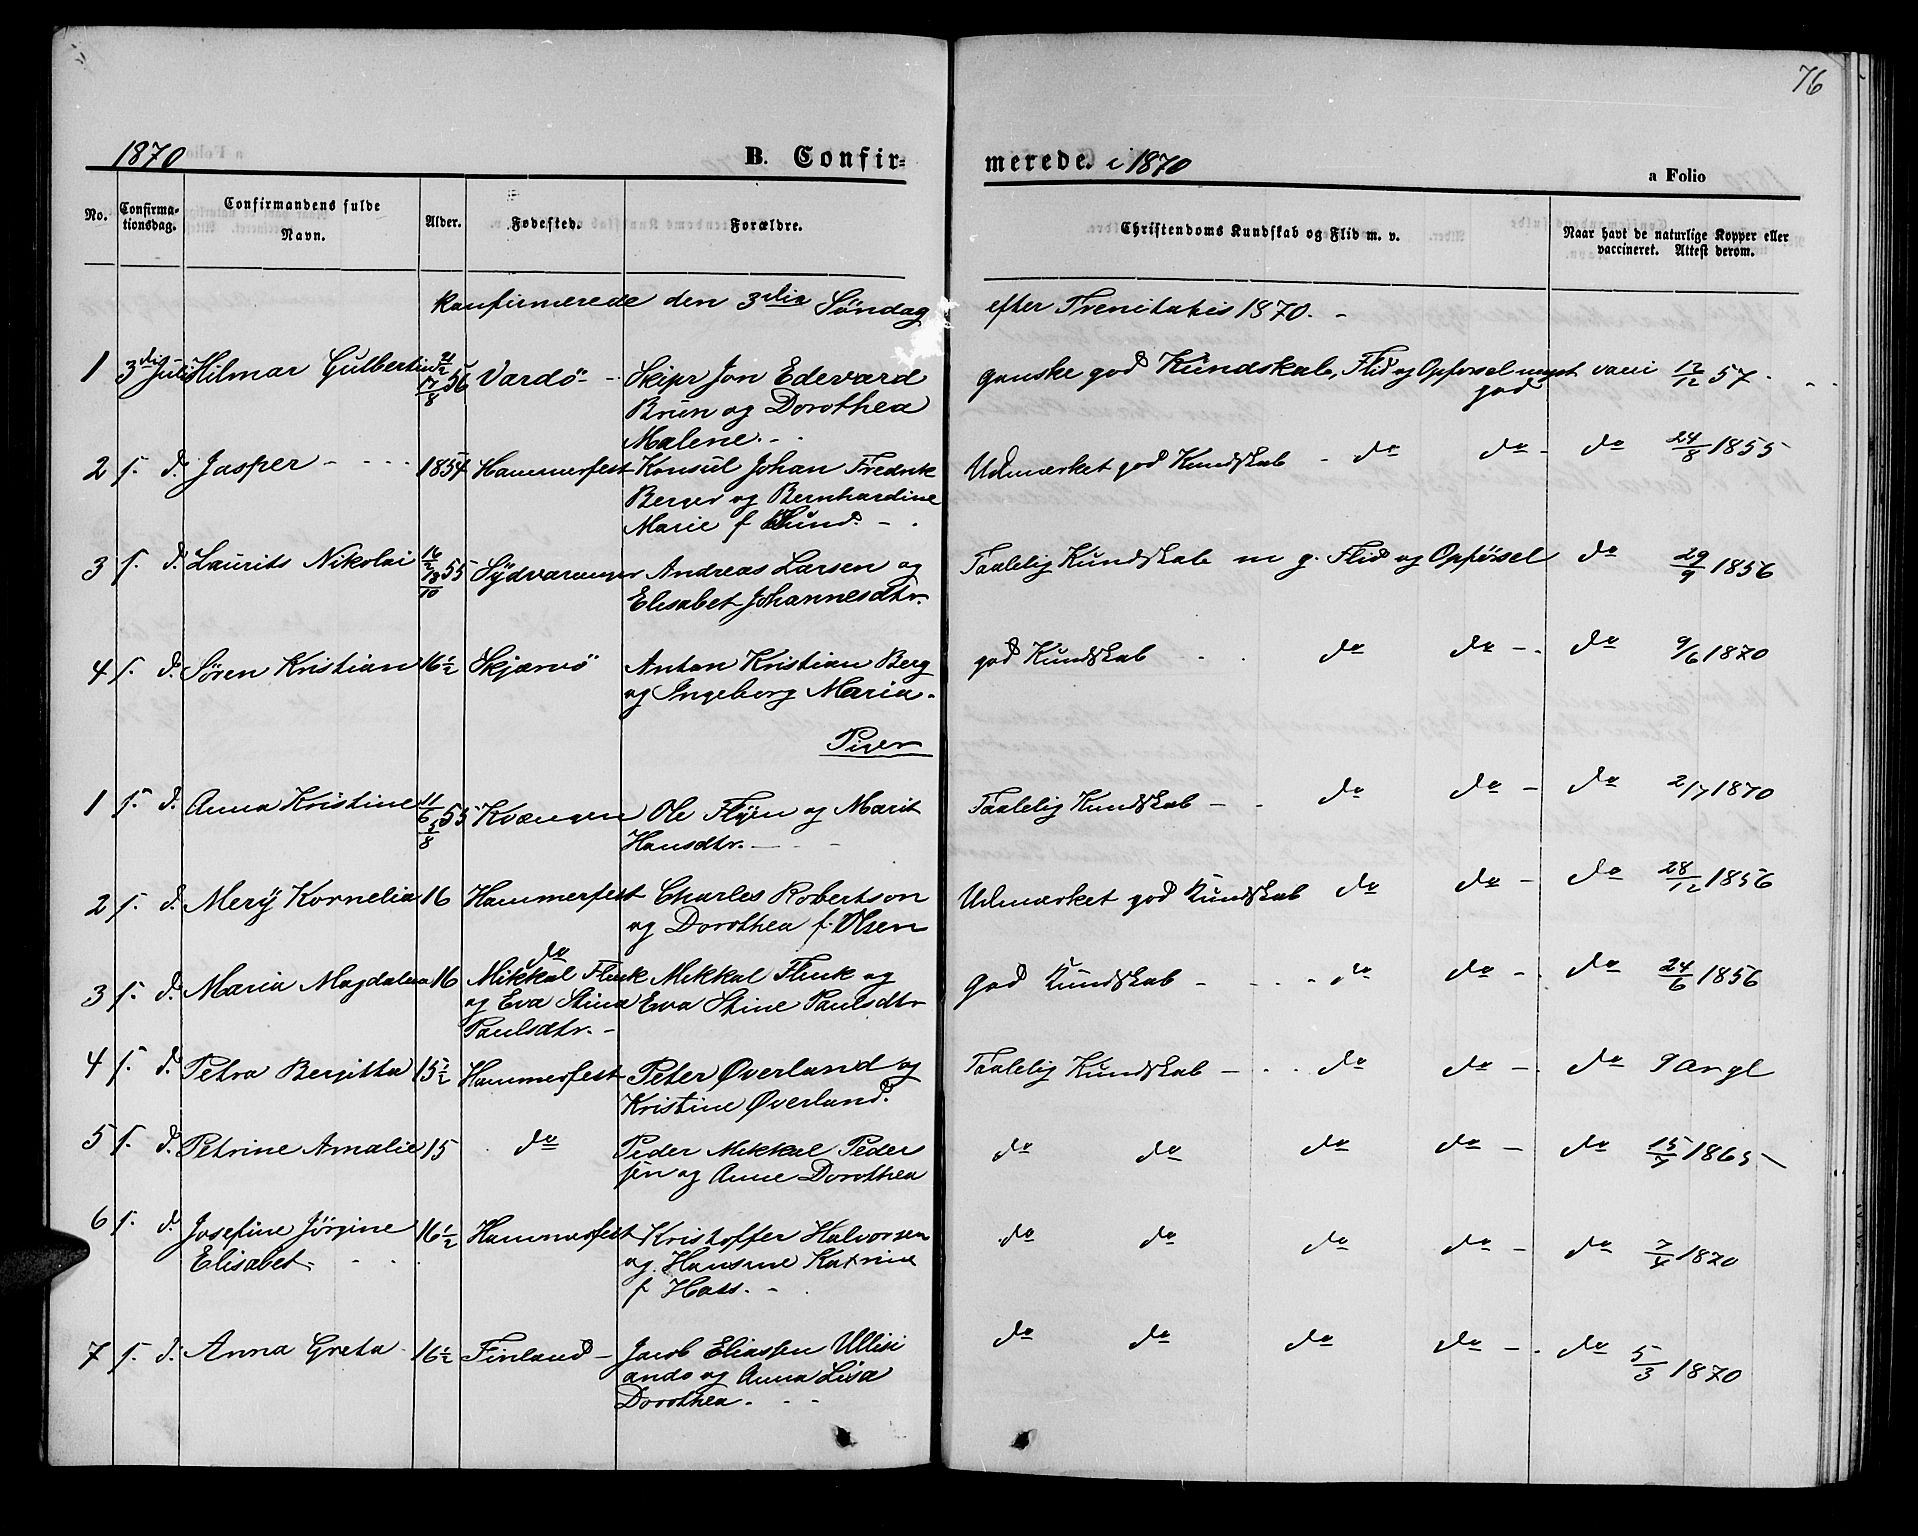 76
1870 B. Confir-
merede. i 1870
a Folio
No. Confirma-tionsdag. Confirmandens fulde Navn. Alder. Fødested. Forældre. Christendoms Kundskab og Flid m. v. Naar havt de naturlige Kopper eller vaccineret. Attest derom.
konfirmerede den 3die Söndag efter Trenitatis 1870. -
1 3die Juli Hilmar 17/8 56 Vardö - Skipr Jon Edevard ganske god Kundskab, Flid og Opförsel meget vacci 12/12 57.
Brun og Dorothea god
Malene. -
2 s. d. Jasper - - - 1854 Hammerfest Konsul Johan Fredrik Udmærket god Kundskab - do do - do 24/8 1855
Berger og Bernhardine
Marie f Lund. -
3 s. d. Laurits Nikolai 55 Sydvaranger Andreas Larsen og Taalelig Kundskab m g. Flid og Opförsel do 29/9 1856
Elisabet Johannesdtr.
4 s. d. Sören Kristian 16 1/2 Skjærvö Anton Kristian Berg god Kundskab - do do - do 9/6 1870
og Ingeborg Maria.
Piger
1 s. d. Anna Kristine 55 Kvænangen Ole Flyen og Marit Taalelig Kundskab - do do - do 2/7 1870
Hansdtr. -
2 s. d. Mery Kornelia 16 Hammerfest Charles Robertson Udmærket god Kundskab do do - do 28/12 1856
og Dorothea f. Olsen
do
3 s. d. Maria Magdalena 16 Mikkal Flink Mikkal Flink og god Kundskab - do do - do 24/6 1856
og Eva Stina Eva Stine Paulsdtr
Paulsdtr. -
4 s. d. Petra Bergitta 15 1/2 Hammerfest Peter Øverland og Taalelig Kundskab - do do - do
Kristine Øverland.
5 s. d. Petrine Amalie 15 do Peder Mikkal Peder do do do do - do 15/7 1865 -
sen og Anne Dorothea
6 s. d. Josefine Jörgine 16 1/2 Hammerfest Kristoffer Halvorsen do do do do - do 7/4 1870
Elisabet - og Hansine Katrine
f Hass. -
7 s. d. Anna Greta 16 1/2 Finland - Jacob Eliassen Ullisi do do do do - do 5/3 1870
ando og Anna Lisa
Dorothea.